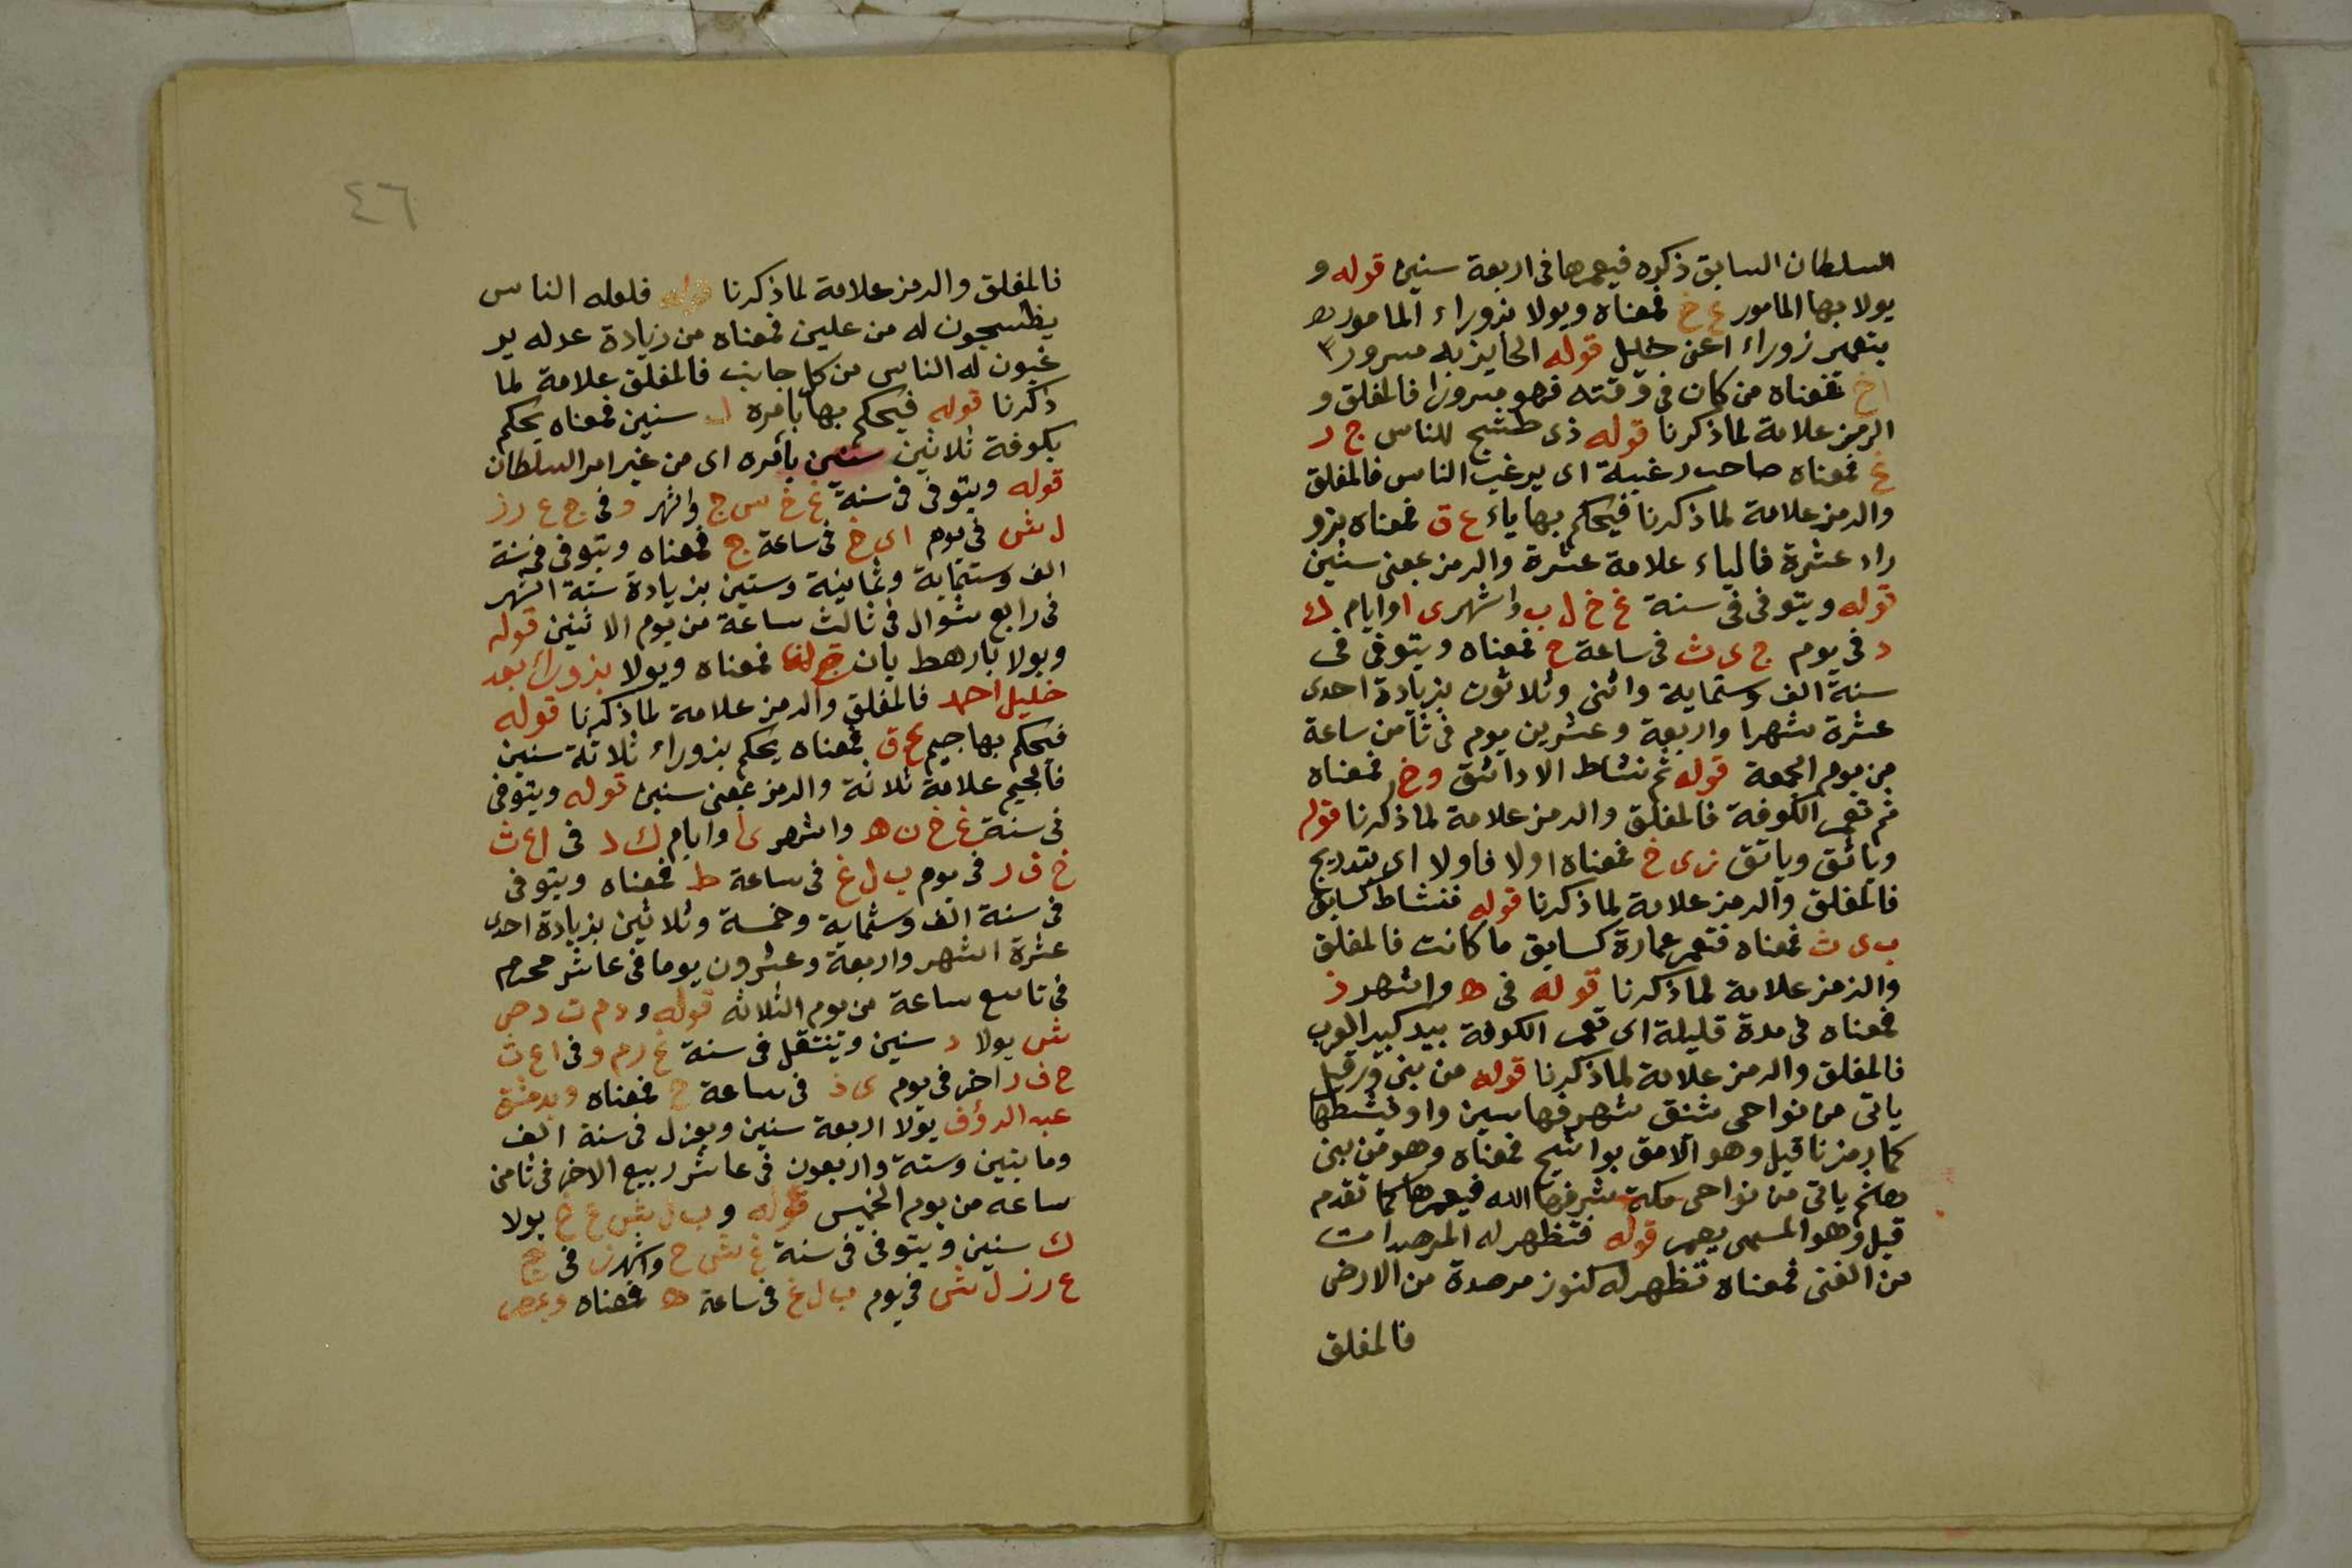 السلطان السابق ذكره فيعمرها فى اربعة سنين قوله و
يولا بها المامور ع خ فمعناه ويولا بزوراء المامور
بتعمير زوراء اعن خليل قوله الحايز به سرور
اخ فمعناه من كان فى وقته فهو مسرورا فالمغلق و
الرمز علامة لما ذكرنا قوله ذى طشج للناس ج ر
غ فمعناه صاحب رغبة اى يرغب الناس فالمغلق
والرمز علامة لما ذكرنا فيحكم بها ياء ع ق فمعناه بزو
راء عشرة فالياء علامة عشرة والرمز بمعنى سنين
قوله ويتوفى فى سنة غ خ ل ب واشهر ى ا وايام ك
د فى يوم ج ى ث فى ساعة ح فمعناه ويتوفى فى
سنة الف وستماية واثنى وثلاثون بزيادة احدى
عشرة شهرا واربعة وعشرين يوم فى ثامن ساعة
من يوم الجمعة قوله ثم نشاط الادانق وخ فمعناه
ثم تعمر الكوفة فالمغلق والرمز علامة لما ذكرنا قوله
وياتق وياتق ن ى خ فمعناه اولا فاولا اى بتدريج
فالمغلق والرمز علامة لما ذكرنا قوله فنشاط كسابق
ب ى ث فمعناه فتعمر عمارة كسابق ما كانت فالمغلق
والرمز علامة لما ذكرنا قوله فى ه واشهر ذ
فمعناه فى مدة قليلة اى تعمر الكوفة بيد كبير العرب
فالمغلق والرمز علامة لما ذكرنا قوله من بنى ورقيل
ياتى من نواحى شنق شهرفها سين واو فينشطها
كما رمزنا قبل وهو الامق بواشيح فمعناه وهو من بنى
ياتى من نواحى مكة شرفها الله فيعمرها كما تقدم
قبل وهو المسمى بعمر قوله فتظهر له المرصدات
من الفنى فمعناه تظهر له كنوز مرصدة من الارض
فالمغلق
٤٦
فالمغلق والرمز علامة لما ذكرنا قوله فلعله الناس
يظسجون له من علين فمعناه من زيادة عدله ير
غبون له الناس من كل جانب فالمغلق علامة لما
ذكرنا قوله فيحكم بها بامره ل سنين فمعناه يحكم
بكوفة ثلاثين سنين بامره اى من غير امر السلطان
قوله ويتوفى فى سنة غ خ س ح واشهر و فى ج ع ر ز
ل ش فى يوم ا ى خ فى ساعة ج فمعناه ويتوفى فى سنة
الف وستماية وثمانية وستين بزيادة ستة اشهر
فى رابع شوال فى ثالث ساعة من يوم الاثنين قوله
ويولا بارهط بان فمعناه ويولا بزوراء بعد
خليل احمد فالمغلق والرمز علامة لما ذكرنا قوله
فيحكم بها جيم ع ق فمعناه يحكم بزوراء ثلاثة سنين
فالجيم علامة ثلاثة والرمز بمعنى سنين قوله ويتوفى
فى سنة غ خ ن ه واشهر ى ا وايام ك د فى ا ع ث
خ ف ر فى يوم ب ل غ فى ساعة ط فمعناه ويتوفى
فى سنة الف وستماية وخمسة وثلاثين بزيادة احدى
عشرة اشهر واربعة وعشرون يوما فى عاشر محرم
فى تاسع ساعة من يوم الثلاثه قوله و د م ت د ص
ش يولا د سنين وينتقل فى سنة غ ر م و فى ا ع ث
ح ف ر اخر فى يوم ى ذ فى ساعة ح فمعناه وبدمشق
عبد الرؤف يولا اربعة سنين ويعزل فى سنة الف
وماتين وستة واربعون فى عاشر ربيع الاخر فى ثامن
ساعه من يوم الخميس قوله و ب ل ش ع خ يولا
ك سنين ويتوفى فى سنة غ ش ح واشهر ز فى ج
ع ر ز ل ش فى يوم ب ل غ فى ساعة ه فمعناه وبمصر